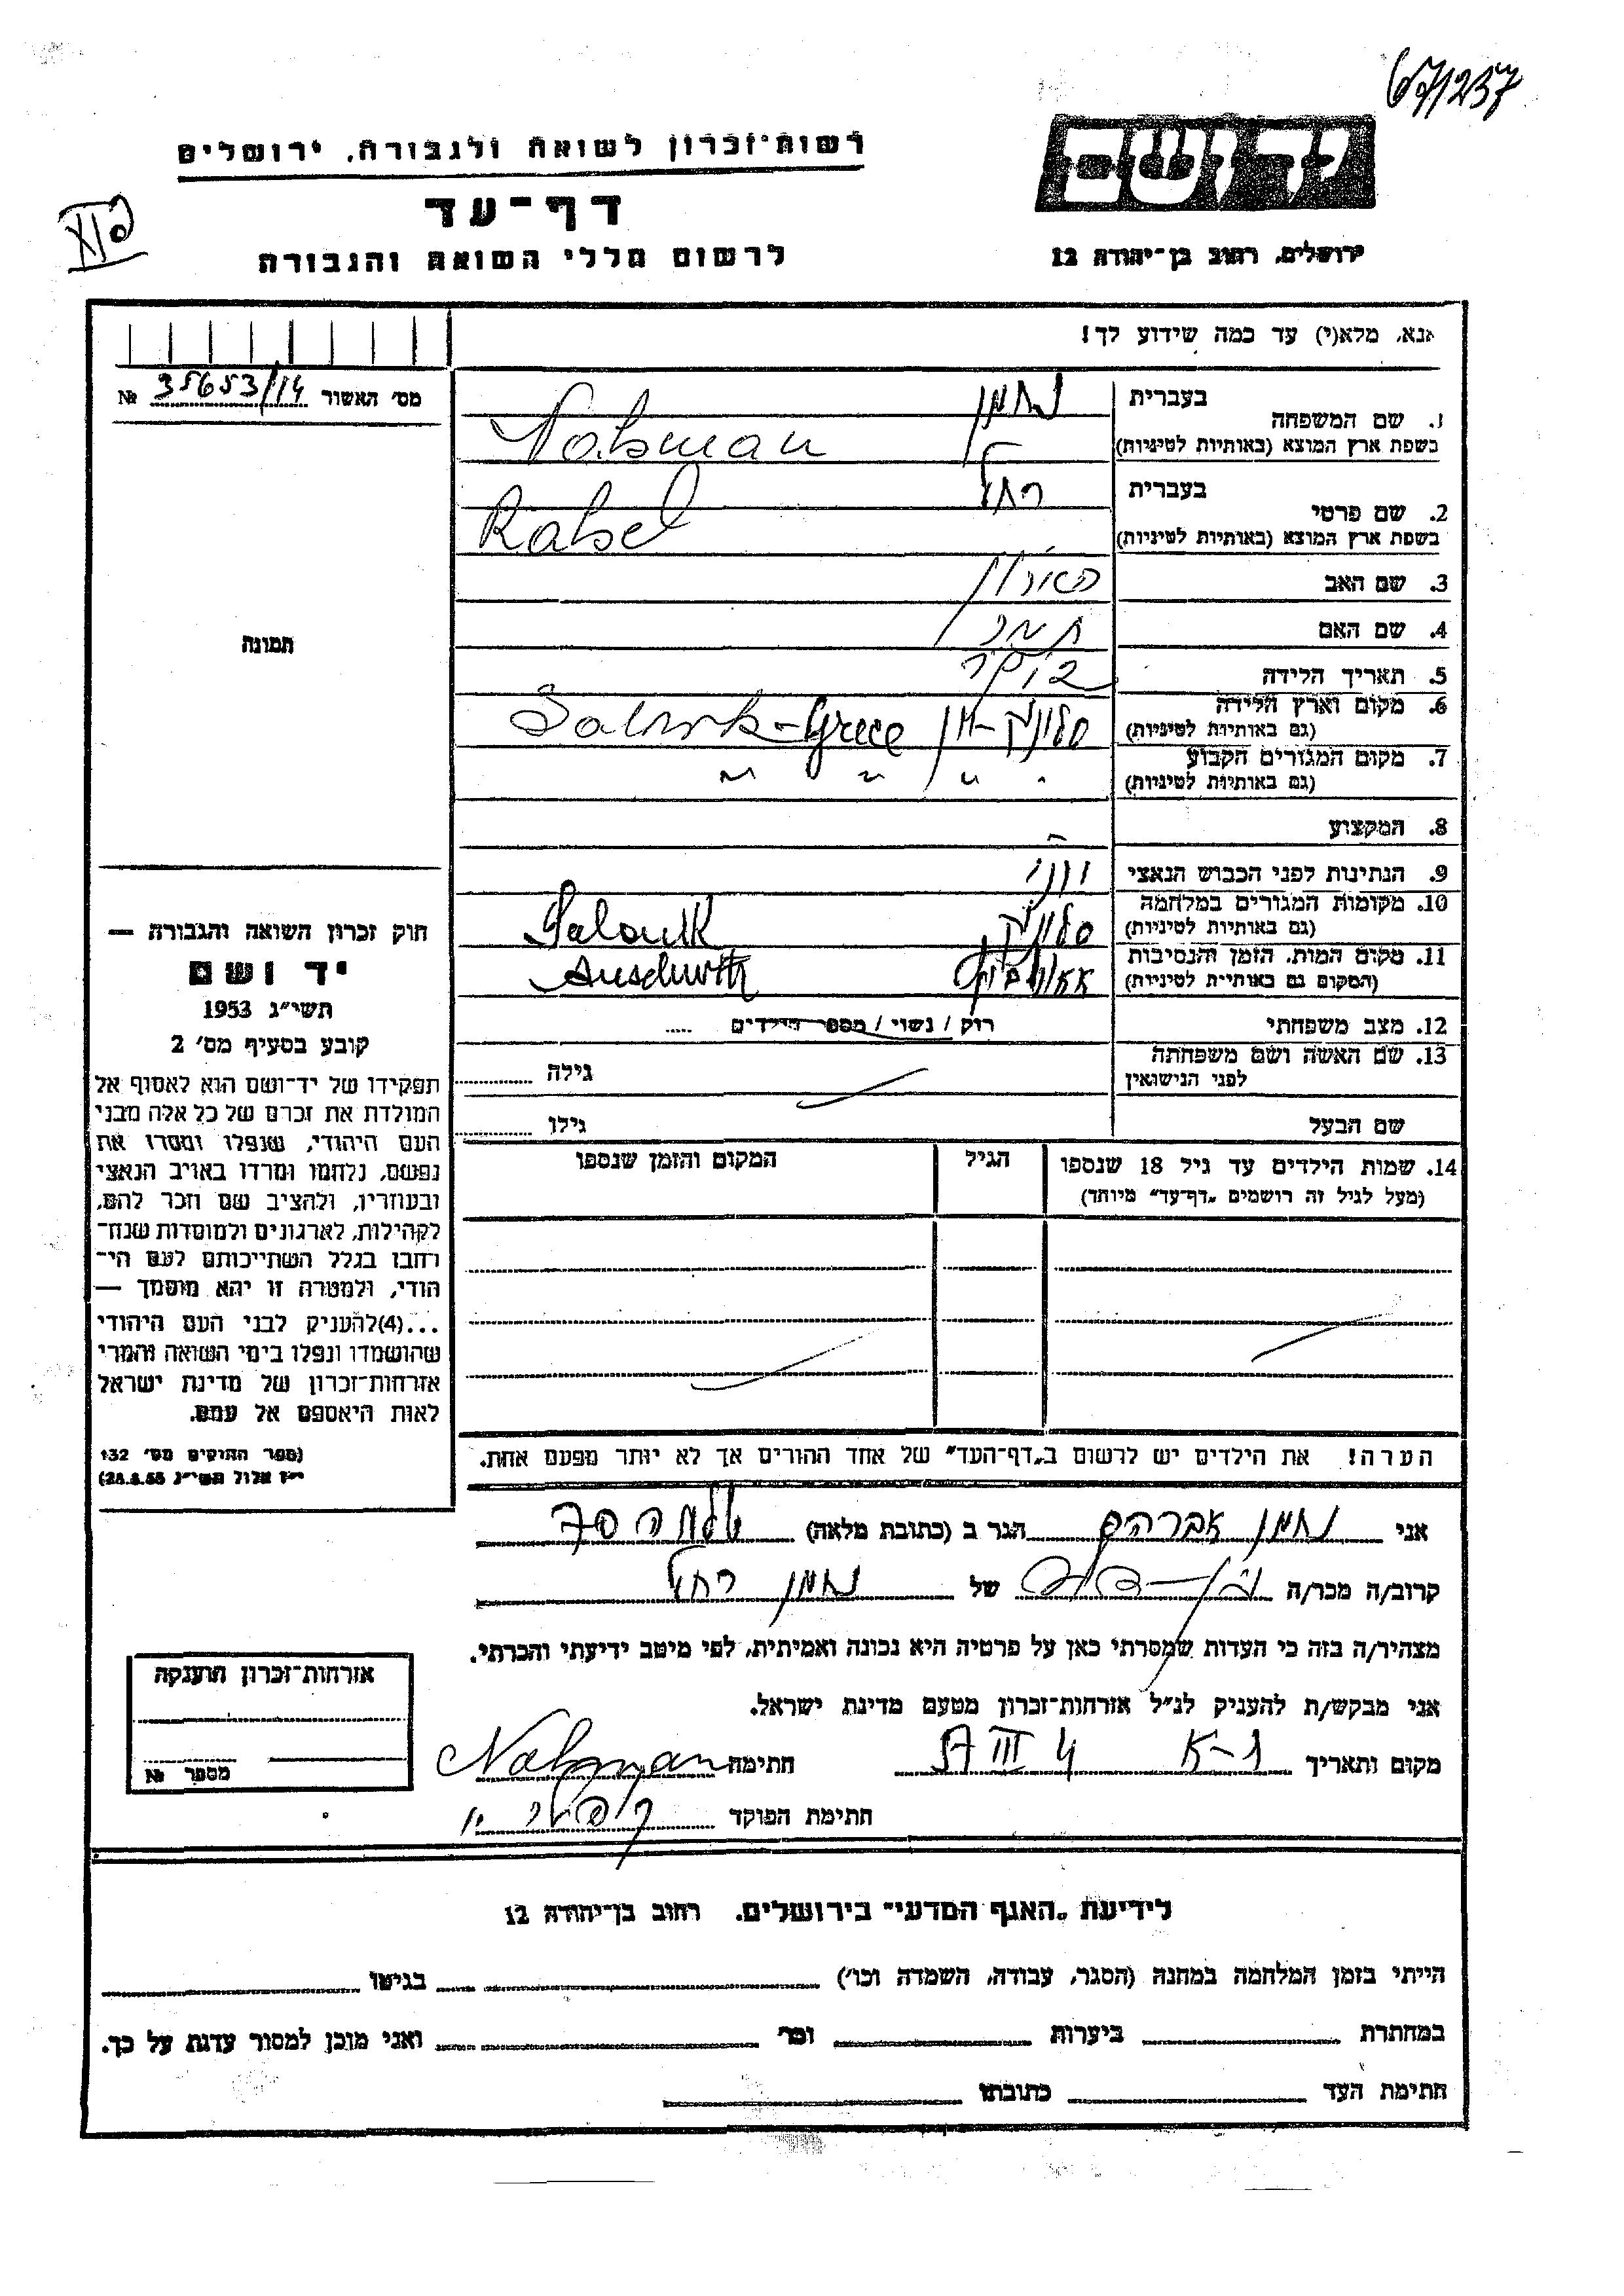 67/237
רשות־זכרון לשואה ולגבורה, ירושלים
יד ושם
דף־עד
XI
לרשום חללי השואה והגבורה
ירושלים, רחוב בן־יהודה 12
אנא, מלא(י) עד כמה שידוע לך!
מס׳ האשור 35653/14 №
בעברית נחמן
1. שם המשפחה
בשפת ארץ המוצא (באותיות לטיניות) Nahman
בעברית רחל
2. שם פרטי
בשפת ארץ המוצא (באותיות לטיניות) Rahel
3. שם האב
4. שם האם תמר
5. תאריך הלידה
6. מקום וארץ הלידה
(גם באותיות לטיניות) סלוניקי-יון Salonik-Grece
7. מקום המגורים הקבוע
(גם באותיות לטיניות) " " " "
8. המקצוע -
9. הנתינות לפני הכבוש הנאצי יוני
10. מקומות המגורים במלחמה
(גם באותיות לטיניות) סלוניקי Salonik
11. מקום המות, הזמן והנסיבות
(המקום גם באותיית לטיניות) Auschwitz
12. מצב משפחתי רוק / נשוי / מספר הילדים .....
13. שם האשה ושם משפחתה
לפני הנישואין
גילה
שם הבעל גילו
14. שמות הילדים עד גיל 18 שנספו הגיל המקום והזמן שנספו
(מעל לגיל זה רושמים „דף־עד״ מיוחד)
הערה! את הילדים יש לרשום ב„דף־העד״ של אחד ההורים אך לא יותר מפעם אחת.
תמונה
חוק זכרון השואה והגבורה —
יד ושם
תשי״ג 1953
קובע בסעיף מס׳ 2
תפקידו של יד־ושם הוא לאסוף אל
המולדת את זכרם של כל אלה מבני
העם היהודי, שנפלו ומסרו את
נפשם, נלחמו ומרדו באויב הנאצי
ובעוזריו, ולהציב שם וזכר להם,
לקהילות, לארגונים ולמוסדות שנח־
רחבו בגלל השתייכותם לעם הי־
הודי, ולמטרה זו יהא מוסמך —
...(4)להעניק לבני העם היהודי
שהושמדו ונפלו בימי השואה והמרי
אזרחות־זכרון של מדינת ישראל
לאות היאספם אל עמם.
(ספר החוקים מס׳ 132
י״ז אלול תשי״ג
אני נחמן אברהם הגר ב (כתובת מלאה)
קרוב/ה מכר/ה של נחמן רחל
מצהיר/ה בזה כי העדות שמסרתי כאן על פרטיה היא נכונה ואמיתית, לפי מיטב ידיעתי והכרתי.
אני מבקש/ת להעניק לנ״ל אזרחות־זכרון מטעם מדינת ישראל.
מקום ותאריך ת-א 4 III 57 חתימה Nahman
חתימת הפוקד
אזרחות־זכרון הוענקה
מספר №
לידיעת „האגף המדעי״ בירושלים, רחוב בן־יהודה 12
הייתי בזמן המלחמה במחנה (הסגר, עבודה, השמדה וכו׳) בגיטו
במחתרת ביערות וכו׳ ואני מוכן למסור עדות על כך.
חתימת העד כתובתו